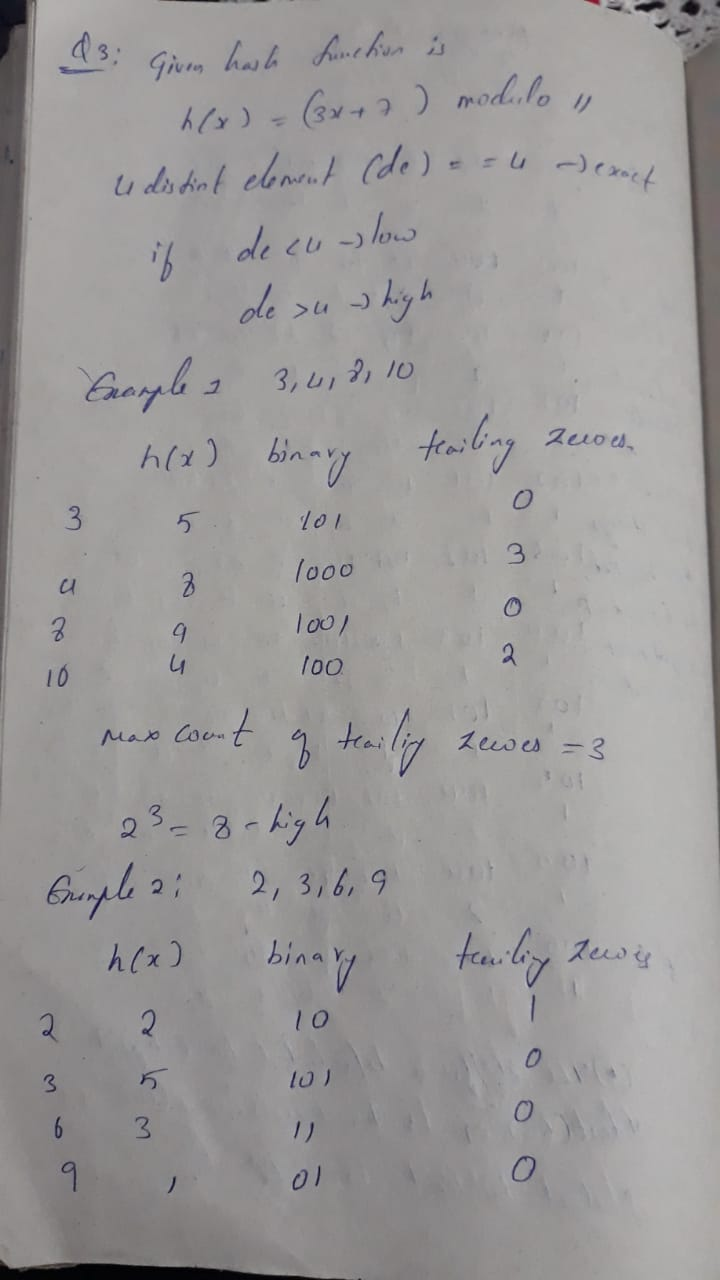 Q3: Given hash function is
h(x) = (3x+7) modulo 11
4 distint element (de) = = 4 → exact
if de <4 → low
de >4 → high
Example 1 3, 4, 8, 10
h(x) binary trailing zeroes.
3 5 101 0
4 8 1000 3
8 9 1001 0
10 4 100 2
max count of trailig zeroes = 3
2³ = 8 - high
Example 2: 2, 3, 6, 9
h(x) binary trailig zeroes
2 2 10 1
3 5 101 0
6 3 11 0
9 1 01 0